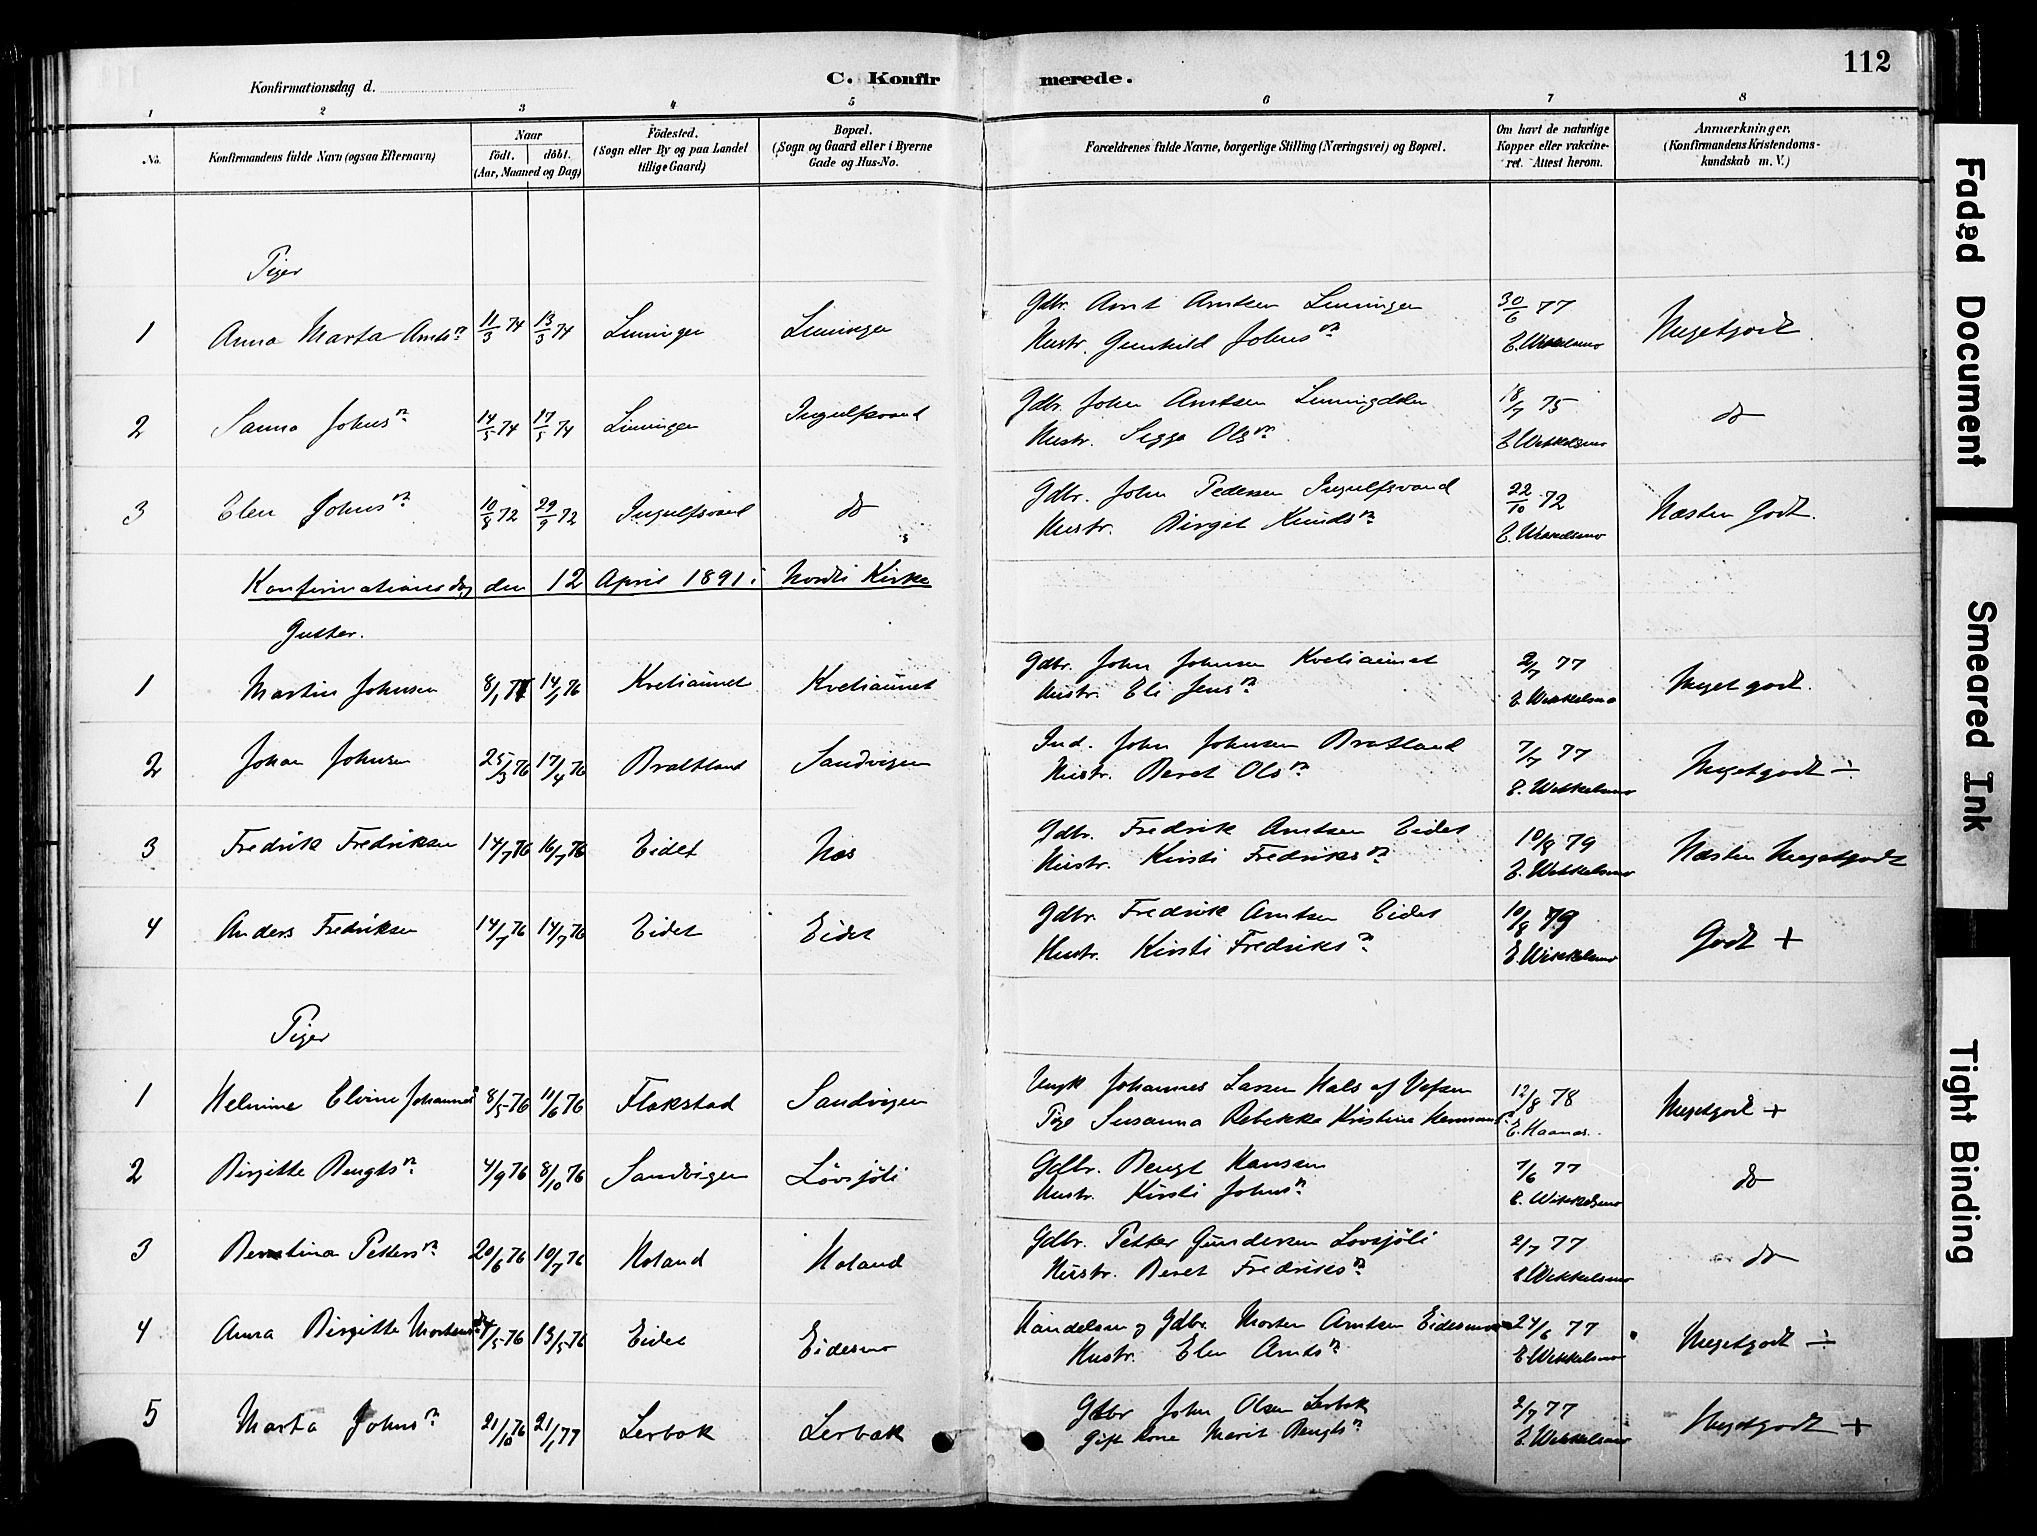 112
C. Konfirmerede.
Konfirmationsdag d.
1 2 3 4 5 6 7 8
No.
Konfirmandens fulde Navn (ogsaa Efternavn)
Naar
födt. döbt.
(Aar, Maaned og Dag)
Födested.
(Sogn eller By og paa Landet
tillige Gaard)
Bopæl.
(Sogn og Gaard eller i Byerne
Gade og Hus-No.
Forældrenes fulde Navne, borgerlige Stilling (Næringsvei) og Bopæl.
Om havt de naturlige
Kopper eller vakcine-
ret. Attest herom.
Anmærkninger.
(Konfirmandens Kristendoms-
kundskab m. V.)
Piger
1 Anna Marta Arnts 11/3 74 13/3 74 Limingen Limingen Gdbr. Arnt Arntsen Limingen 30/6 77 Megetgodt.
Hustr. Gunhild Johns E. Wekkelsmo
2 Sanna Johns 14/5 74 17/5 74 Limingen Ingulfsvand Gdbr. John Arntsen 18/7 75 do
Hustr. Sigga Ols E. Wekkelsmo
3 Elen Johns 10/8 72 29/9 72 Ingulfsvand do Gdbr. John Pedersen Ingulfsvand 22/10 72 Næsten Godt.
Hustr. Birgit Knuds
Konfirmationsdag den 12 April 1891 i Nordli Kirke
Gutter.
1 Martin Johnsen 8/1 76 14/1 76 Kveliaunet Kveliaunet Gdbr. John Johnsen Kveliaunet 2/7 77 Meget godt.
Hustr. Eli Jens E. Wekkelsmo
2 Johan Johnsen 25/3 76 17/4 76 Bratland Sandvigen Ind. John Johnsen Bratland 7/7 77 Megetgodt ÷
Hustr. Beret Ols E. Wekkelsmo
3 Fredrik Fredriksen 14/7 76 16/7 76 Eidet Næs Gdbr. Fredrik Arntsen Eidet 10/8 79 Næsten Megetgodt
Hustr. Kirsti Fredriks E. Wekkelsmo
4 Anders Fredriksen 14/7 76 14/7 76 Eidet Eidet Gdbr. Fredrik Arntsen Eidet 10/8 79 Godt +
Hustr. Kirsti Fredriks E. Wekkelsmo
Piger
1 Helmine Elvine Johannes 8/5 76 11/6 76 Flakstad Sandvigen Ungk Johannes Larsen Hals af Vefsen 12/8 78 Megetgodt +
Pige Susanna Rebekka Kristine Hermans
2 Birgitte Bengts 4/9 76 8/10 76 Sandvigen Lövsjöli Gdbr. Bengt Hansen 7/6 77 do
Hustr. Kirsti Johns E. Wekkelsmo
3 Petters 20/6 76 10/7 76 Holand Holand Gdbr. Petter Gundersen Lovsjöli 2/7 77 do
Hustr. Beret Fredriks E. Wekkelsmo
4 Anna Birgitte Mortens 13/5 76 Eidet Eidesmo Handelsm og Gdbr. Morten Arntsen Eidesmo 24/6 77 Megetgodt ÷
Hustr. Elen Arnts E. Wekkelsmo
5 Marta Johns 21/10 76 21/1 77 Lerbak Lerbæk Gdbr John Olsen Lerbak 2/7 77 Megetgodt +
Gift Kone Marit Bengts E. Wekkelsmo
Faded Document
Smeared Ink
Tight Binding